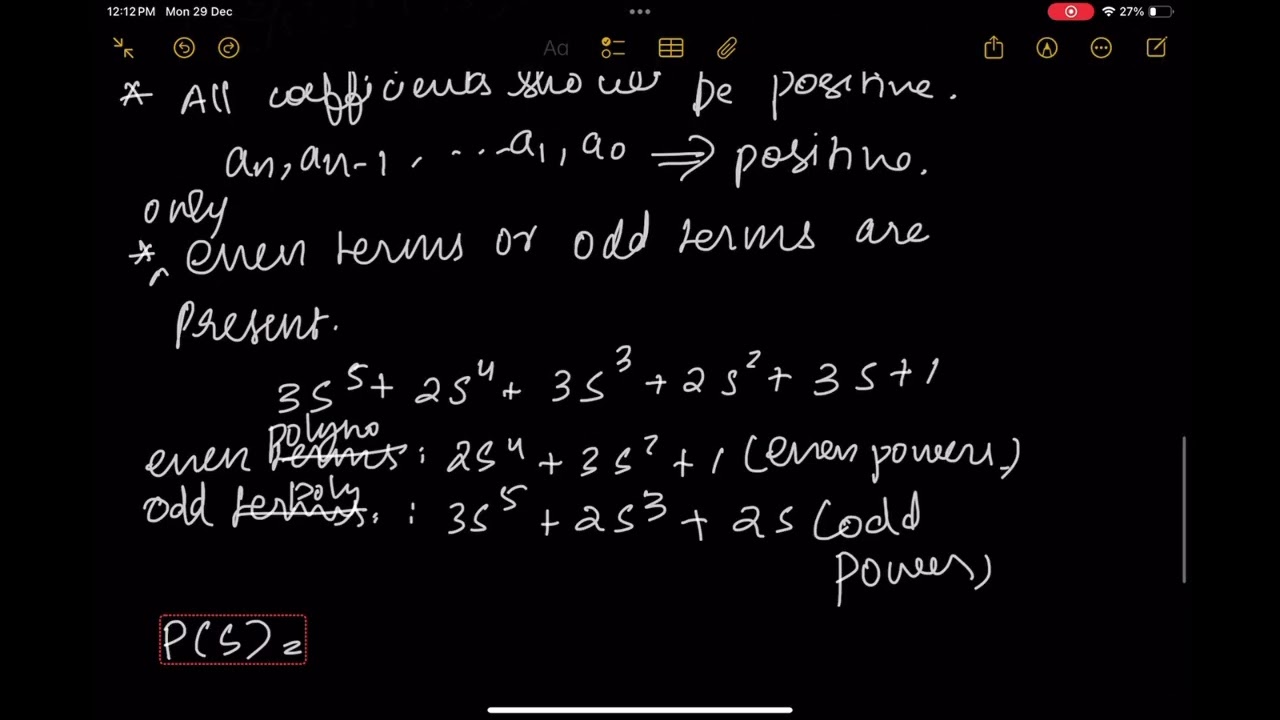 12:12 PM Mon 29 Dec
27%
Aa
* All coefficients should be positive.
an, an-1, ...a1, a0 ⇒ positive.
only
* ^ even terms or odd terms are
present.
3s⁵ + 2s⁴ + 3s³ + 2s² + 3s + 1
polyno
even terms : 2s⁴ + 3s² + 1 (even powers)
poly
odd terms. : 3s⁵ + 2s³ + 2s (odd
powers)
P(s) =